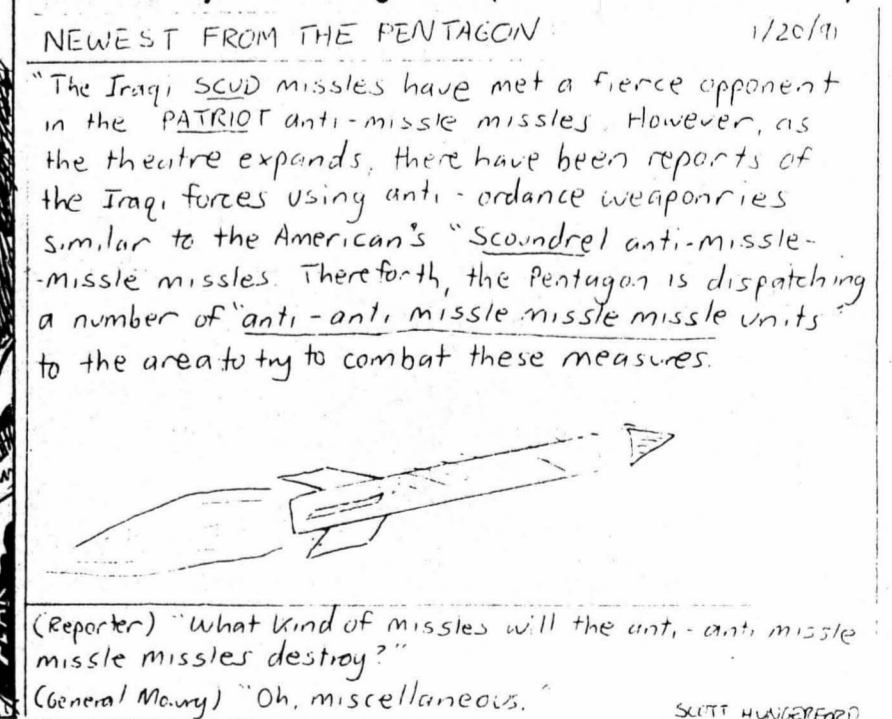 NEWEST FROM THE PENTAGON: 1/20/91
"The Iraqi SCUD missles have met a fierce opponent
in the PATRIOT anti-missle missles. However, as
the theatre expands, there have been reports of
the Iraqi forces using anti-ordance weaponries
similar to the American's "Scoundrel anti-missle-
-missle missles. Thereforth, the Pentagon is dispatching
a number of "anti-anti missle missle missle units"
to the area to try to combat these measures.
(Reporter) "What kind of missles will the anti-anti missle
missle missles destroy?"
(General Maury) "Oh, miscellaneous."
SCOTT HUNGERFORD